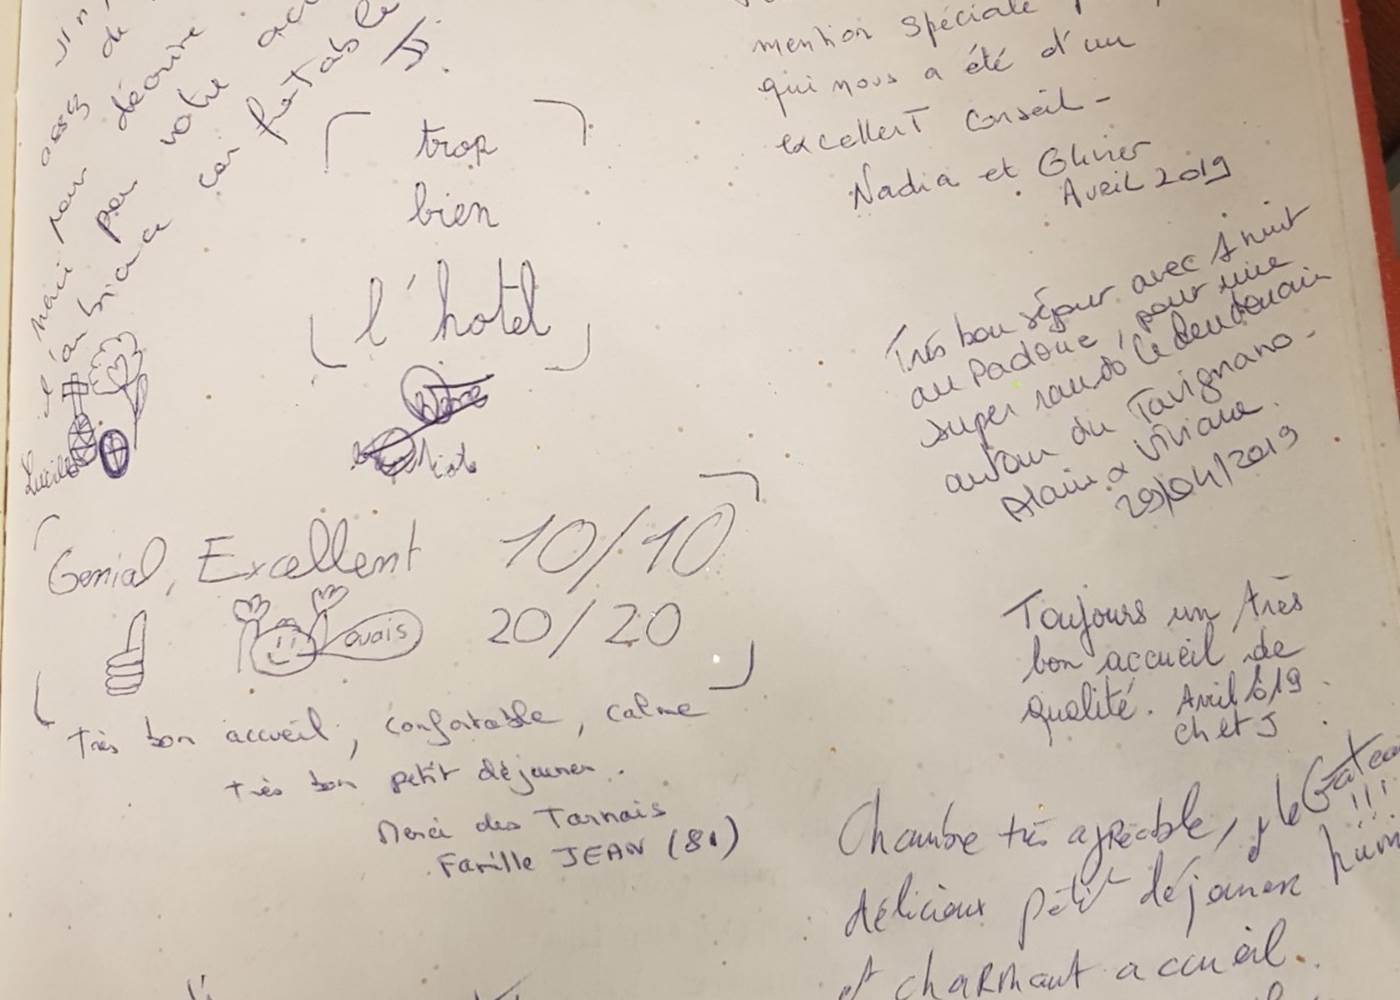 assez de
mais pour décrire
peu votre
l'ambiance confortable
Lucile
trop
bien
l'hotel
Genial, Excellent 10/10
ouais 20/20
Très bon accueil, confortable, calme
très bon petit déjeuner.
Merci des Tarnais
Famille JEAN (81)
mention spéciale
qui nous a été d'un
excellent conseil -
Nadia et Olivier
Avril 2019
Très bon séjour avec 1 nuit
au Padoue, pour une
super rando le lendemain
autour du Tavignano.
Alain & Viviane.
29/04/2019
Toujours un très
bon accueil de
qualité. Avril 2019
Ch et J
Chambre très agréable, le Gateau
!!!
délicieux petit déjeuner hum
et charmant accueil.